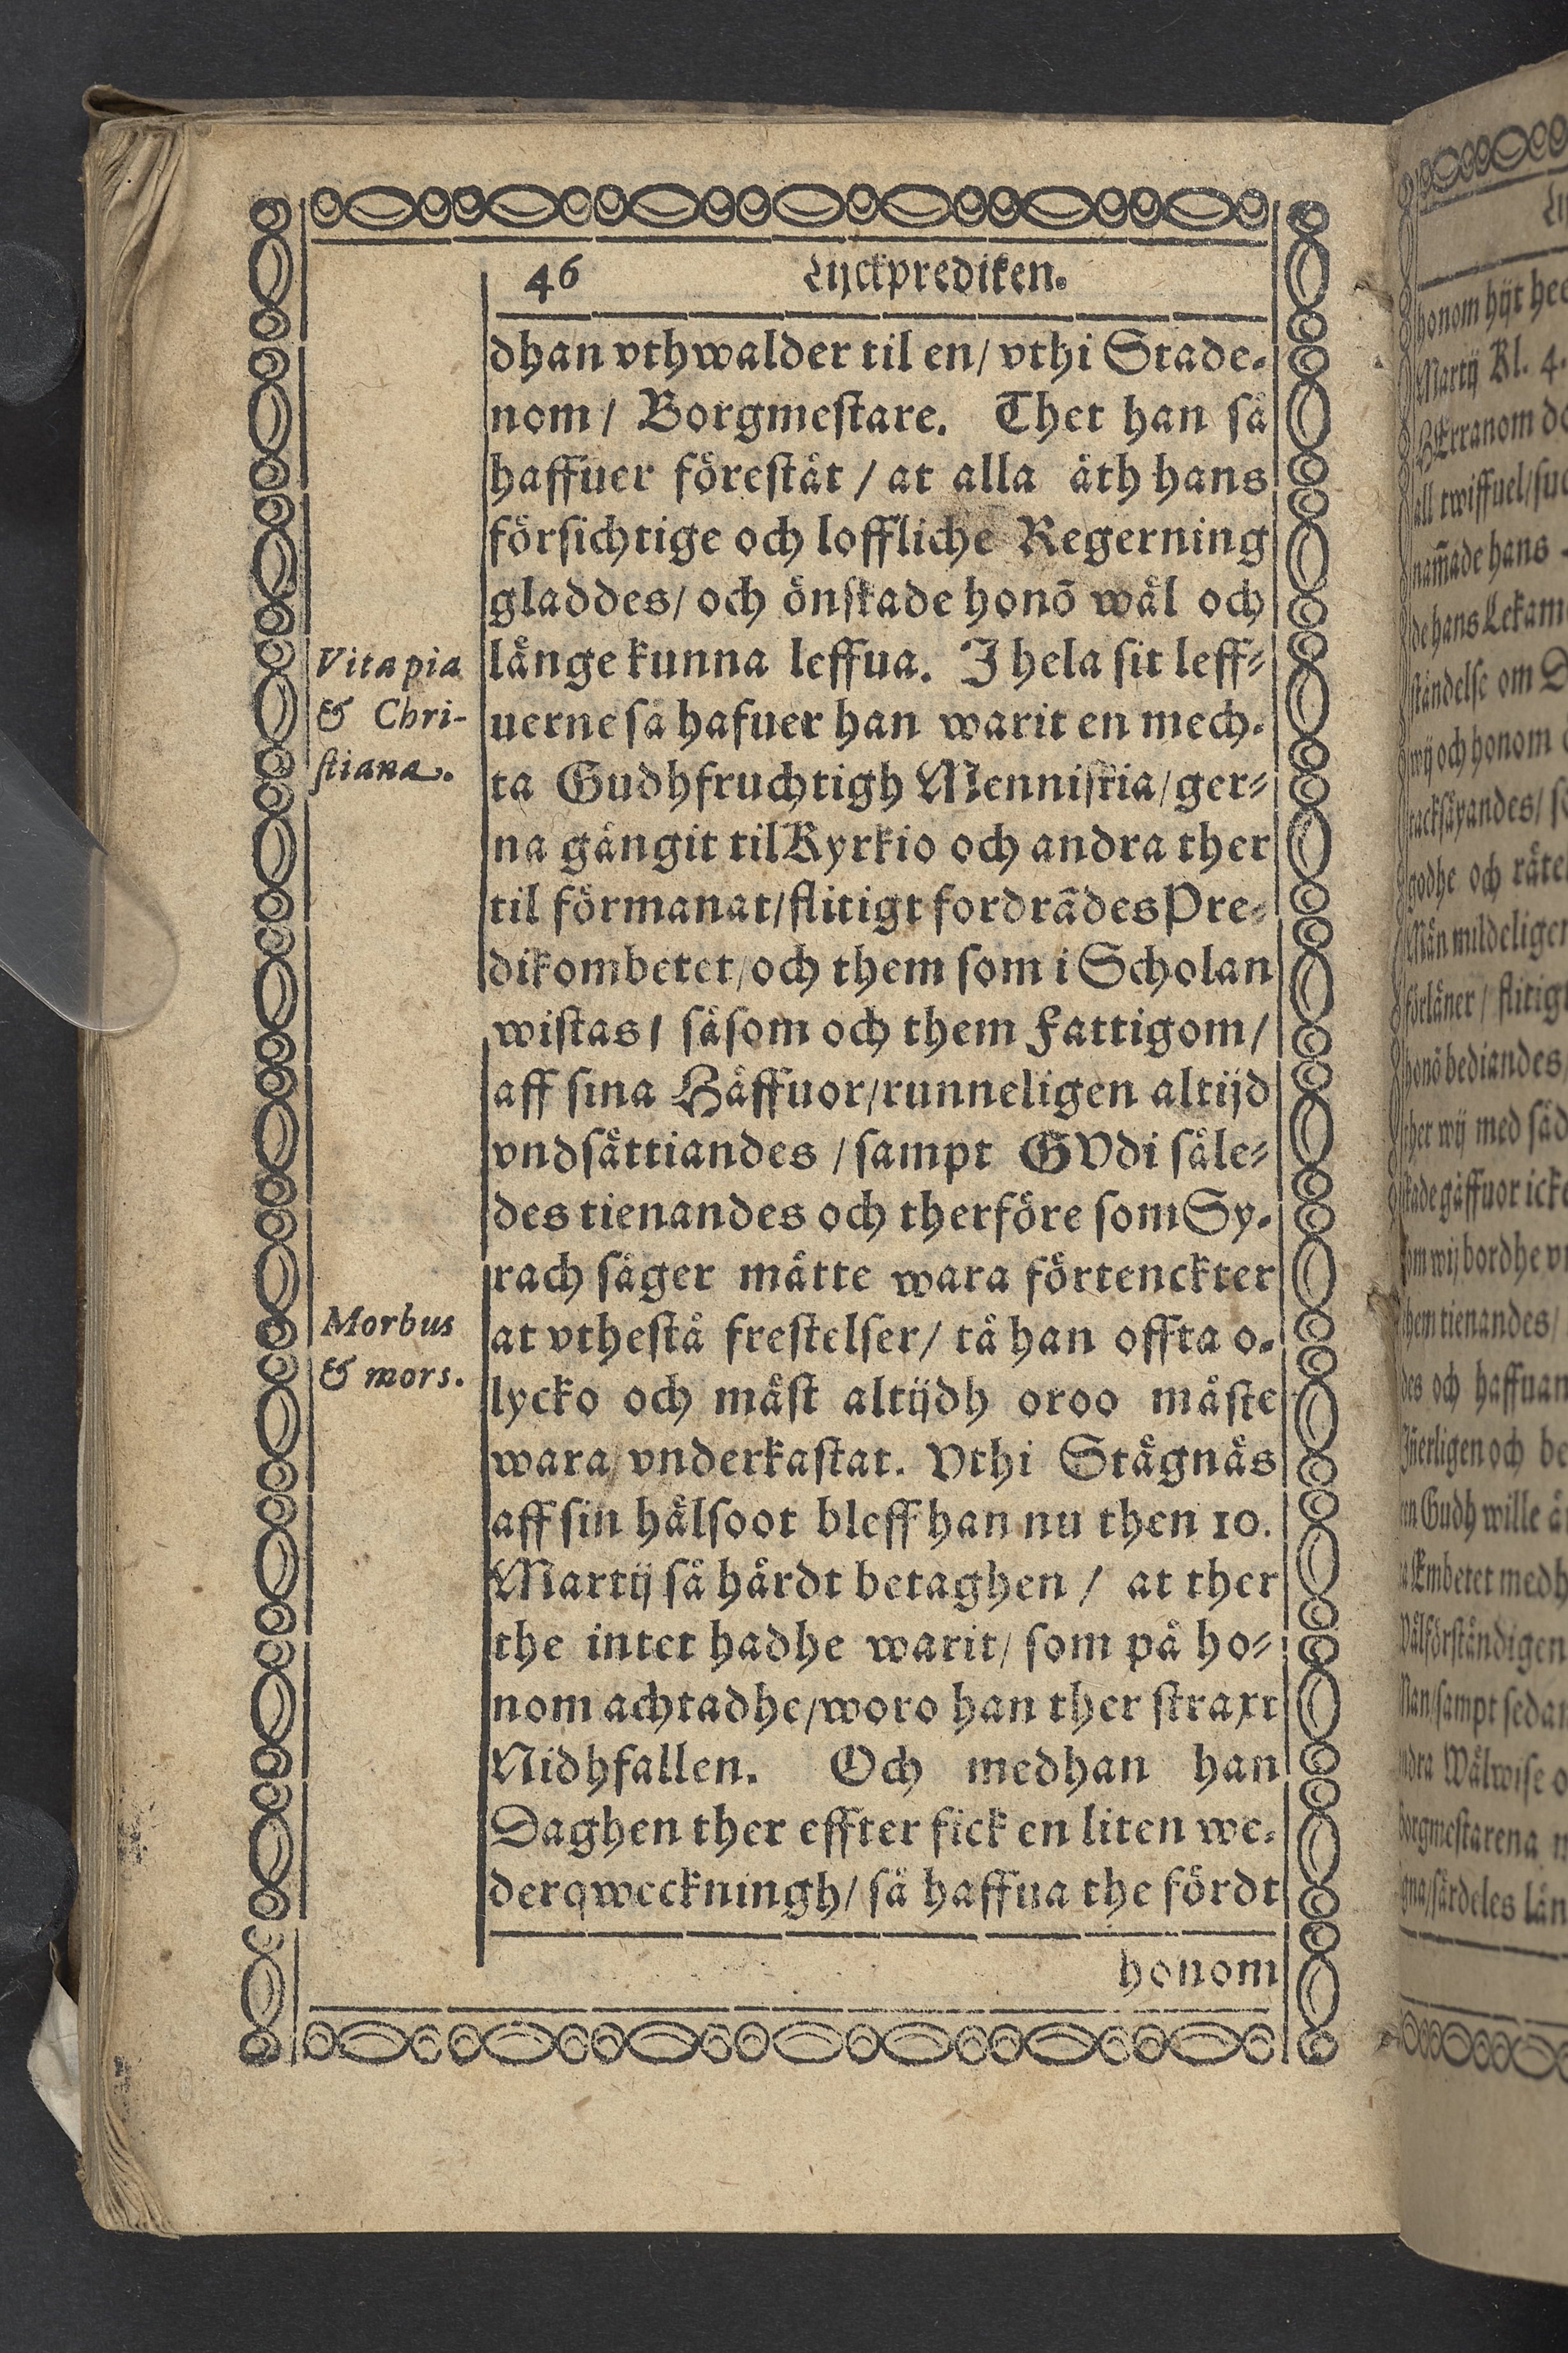 46 Lijckprediken.
dhan vthwalder til en/ vthi Stade-
nom/ Borgmestare. Thet han så
haffuer föreståt / at alla åth hans
försichtige och loffliche Regerning
gladdes/ och önskade honō wål och
långe kunna leffua. I hela sit leff-
uerne så hafuer han warit en mech-
ta Gudhfruchtigh Menniskia/ ger-
na gångit til Kyrkio och andra ther
til förmanat/ flitigt fordrādes Pre-
dikombetet/ och them som i Scholan
wistas/ såsom och them Fattigom/
aff sina Håffuor/ runneligen altijd
vndsåttiandes / sampt GVdi såle-
des tienandes och therföre som Sy-
rach såger måtte wara förtenckter
at vthestå frestelser/ tå han offta o-
lycko och måst altijdh oroo måste
wara/ vnderkastat. Vthi Stågnås
aff sin hålsoot bleff han nu then 10.
Martij så hårdt betaghen / at ther
the intet hadhe warit/ som på ho-
nom achtadhe/ woro han ther straxt
Nidhfallen. Och medhan han
Daghen ther effter fick en liten we-
derqweckningh/ så haffua the fördt
honom
Vita pia
& Chri-
stiana.
Morbus
& mors.
honom hijt
Martij Kl. 4.
HErranom
all twiffuel/
nam̄ade hans
de hans Lekam
ståndelse om
wij och honom
tacksåyandes/
godhe och
Mån mildeliger
förlåner / flitigt
honō bediandes
ther wij med
gåffuor icke
om wij bordhe
them tienandes/
des och haffuan
och be
Gudh wille
Embetet medh
Wålförståndigen
Man/ sampt sedan
andra Wålwise
Borgmestarena
särdeles